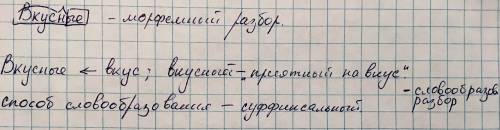 Вкусные - морфемный разбор.
Вкусные ← вкус; вкусный – "приятный на вкус"
- словообразов. разбор
способ словообразования – суффиксальный